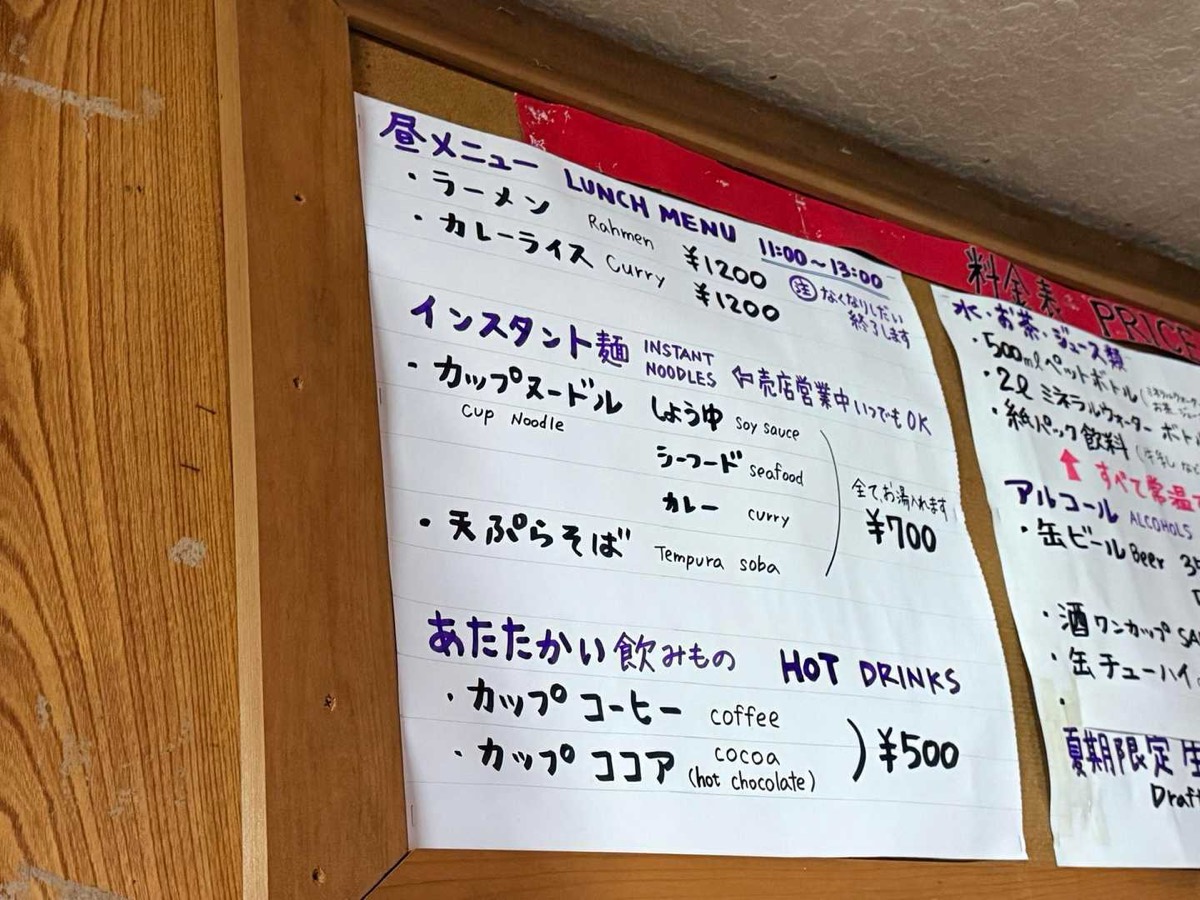 昼メニュー LUNCH MENU 11:00～13:00
・ラーメン Rahmen ¥1200
・カレーライス Curry ¥1200
注 なくなりしだい
終了します
インスタント麺 INSTANT NOODLES ⇦売店営業中いつでもOK
・カップヌードル しょうゆ soy sauce
Cup Noodle
シーフード seafood
カレー curry
・天ぷらそば Tempura soba
全てお湯入れます
¥700
あたたかい飲みもの HOT DRINKS
・カップコーヒー coffee
・カップココア cocoa
(hot chocolate)
¥500
料金表 PRICE
水・お茶・ジュース類
・500mlペットボトル
・2ℓ ミネラルウォーター
・紙パック飲料
↑ すべて常温
アルコール ALCOHOLS
・缶ビール Beer
・酒ワンカップ
・缶チューハイ
・
夏期限定
Draft